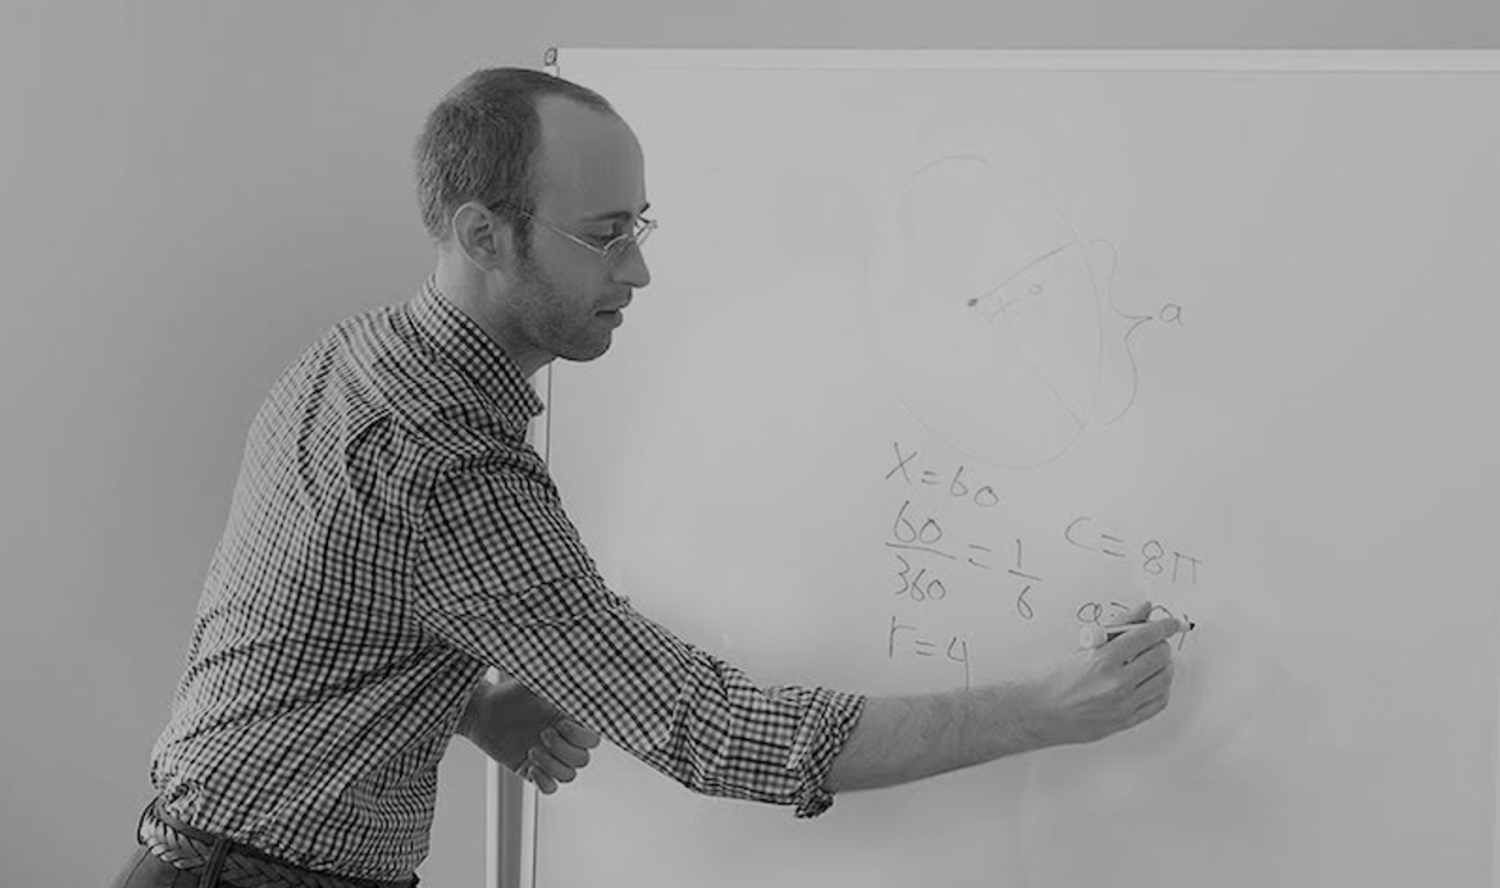 a
x°
a
X=60
60/360 = 1/6
C=8π
r=4
a=